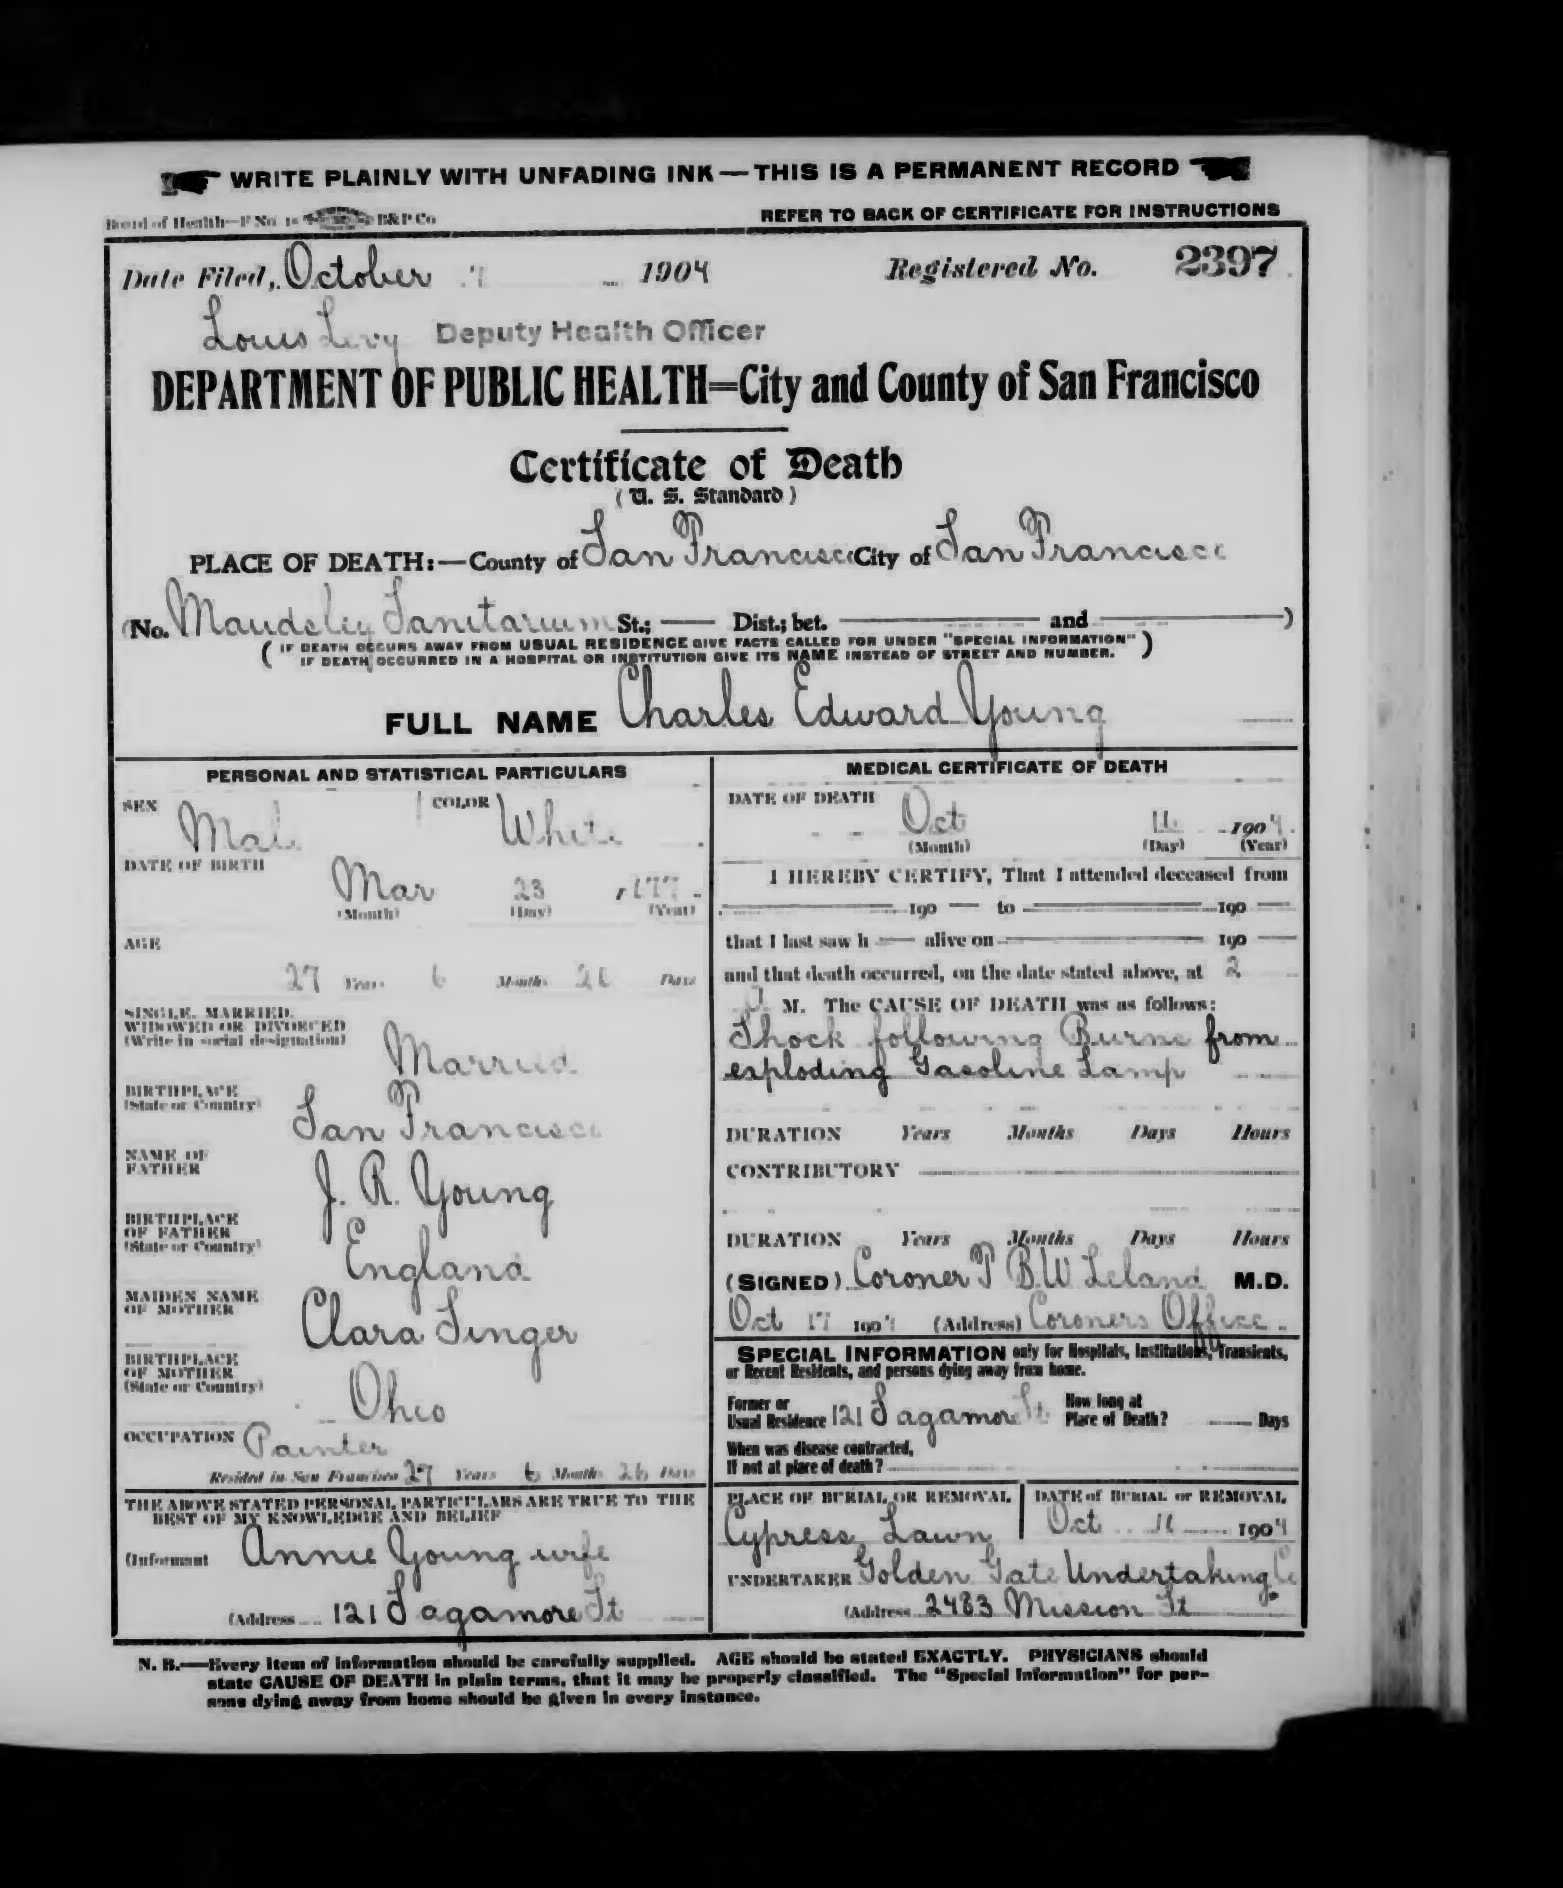 WRITE PLAINLY WITH UNFADING INK—THIS IS A PERMANENT RECORD
Board of Health—F No. B&P Co
REFER TO BACK OF CERTIFICATE FOR INSTRUCTIONS
Date Filed, October 1904 Registered No. 2397
Louis Levy Deputy Health Officer
DEPARTMENT OF PUBLIC HEALTH=City and County of San Francisco
Certificate of Death
(U. S. Standard)
PLACE OF DEATH:—County of San Francisco City of San Francisco
(No. Sanitarium St.; — Dist.; bet. — and —)
(IF DEATH OCCURS AWAY FROM USUAL RESIDENCE GIVE FACTS CALLED FOR UNDER "SPECIAL INFORMATION"
IF DEATH OCCURRED IN A HOSPITAL OR INSTITUTION GIVE ITS NAME INSTEAD OF STREET AND NUMBER.)
FULL NAME Charles Edward Young
PERSONAL AND STATISTICAL PARTICULARS
SEX Male COLOR White
DATE OF BIRTH
Mar 23
(Month) (Day) (Year)
AGE
27 Years 6 Months Days
SINGLE, MARRIED,
WIDOWED OR DIVORCED
(Write in social designation)
Married
BIRTHPLACE
(State or Country)
San Francisco
NAME OF
FATHER
J. R. Young
BIRTHPLACE
OF FATHER
(State or Country)
England
MAIDEN NAME
OF MOTHER
Clara Singer
BIRTHPLACE
OF MOTHER
(State or Country)
Ohio
OCCUPATION Painter
Resided in San Francisco 27 Years 6 Months 26 Days
THE ABOVE STATED PERSONAL PARTICULARS ARE TRUE TO THE
BEST OF MY KNOWLEDGE AND BELIEF
(Informant Annie Young wife
(Address 121 Sagamore St
MEDICAL CERTIFICATE OF DEATH
DATE OF DEATH
Oct 1904
(Month) (Day) (Year)
I HEREBY CERTIFY, That I attended deceased from
190 — to — 190 —
that I last saw h — alive on — 190 —
and that death occurred, on the date stated above, at 2
M. The CAUSE OF DEATH was as follows:
Shock following Burns from
exploding Gasoline Lamp
DURATION Years Months Days Hours
CONTRIBUTORY —
DURATION Years Months Days Hours
(SIGNED) Coroner T B W Leland M.D.
Oct 17 1904 (Address) Coroners Office
SPECIAL INFORMATION only for Hospitals, Institutions, Transients,
or Recent Residents, and persons dying away from home.
Former or
Usual Residence 121 Sagamore St
How long at
Place of Death? — Days
When was disease contracted,
If not at place of death?
PLACE OF BURIAL OR REMOVAL
Cypress Lawn
DATE of BURIAL or REMOVAL
Oct 1904
UNDERTAKER Golden Gate Undertaking Co
(Address 2483 Mission St
N. B.—Every item of information should be carefully supplied. AGE should be stated EXACTLY. PHYSICIANS should
state CAUSE OF DEATH in plain terms, that it may be properly classified. The "Special Information" for per-
sons dying away from home should be given in every instance.